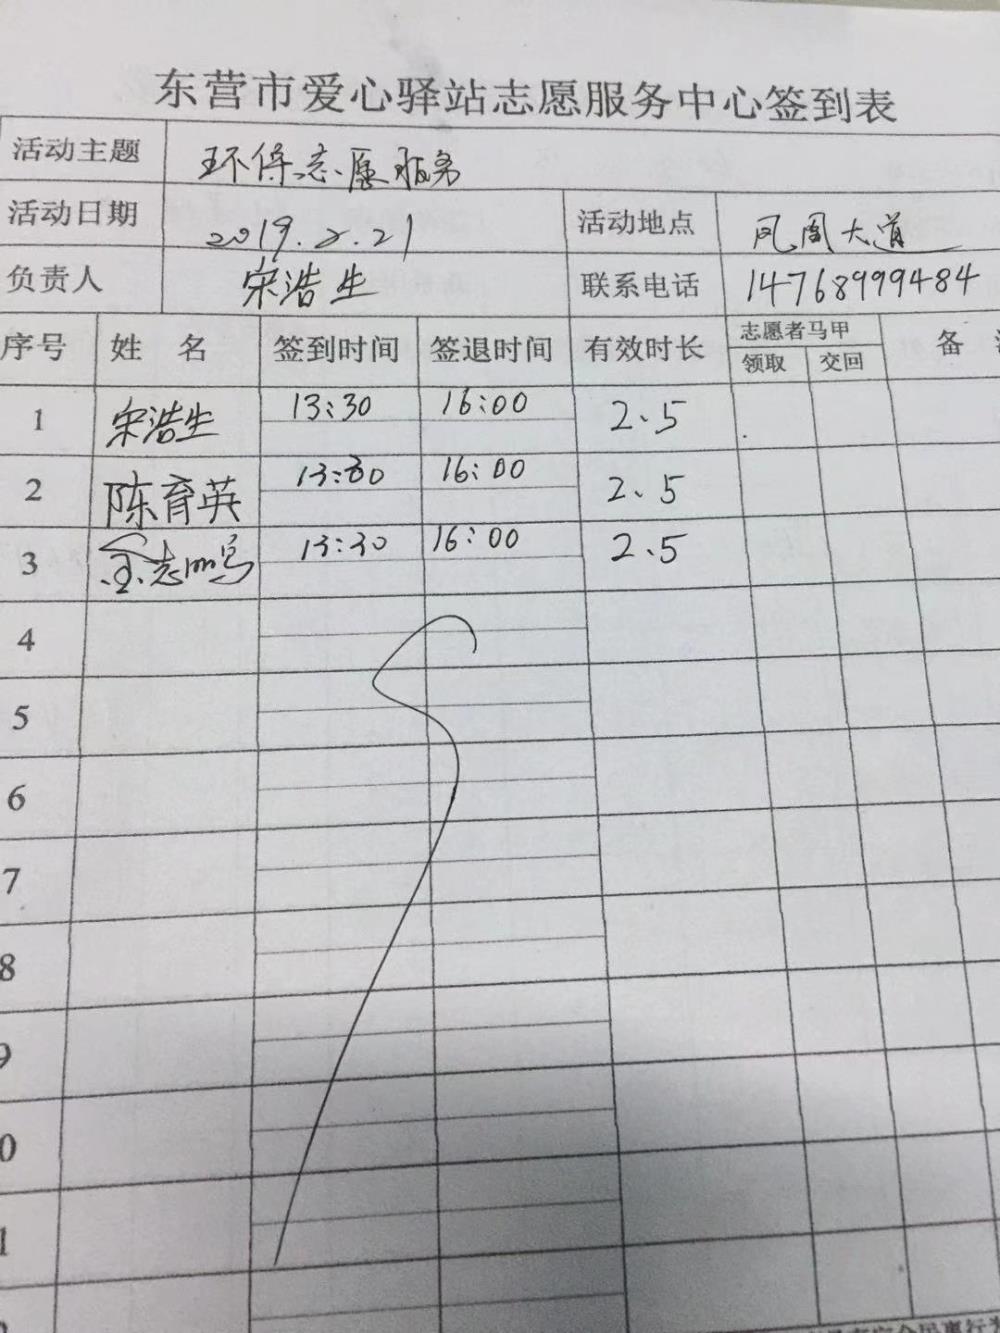 东营市爱心驿站志愿服务中心签到表
活动主题 环保志愿服务
活动日期 2019.2.21 活动地点 凤凰大道
负责人 宋浩生 联系电话 14768999484
序号 姓 名 签到时间 签退时间 有效时长 志愿者马甲 备
领取 交回
1 宋浩生 13:30 16:00 2.5
2 陈育英 13:30 16:00 2.5
3 金志鸣 13:30 16:00 2.5
4
5
6
7
8
9
0
1